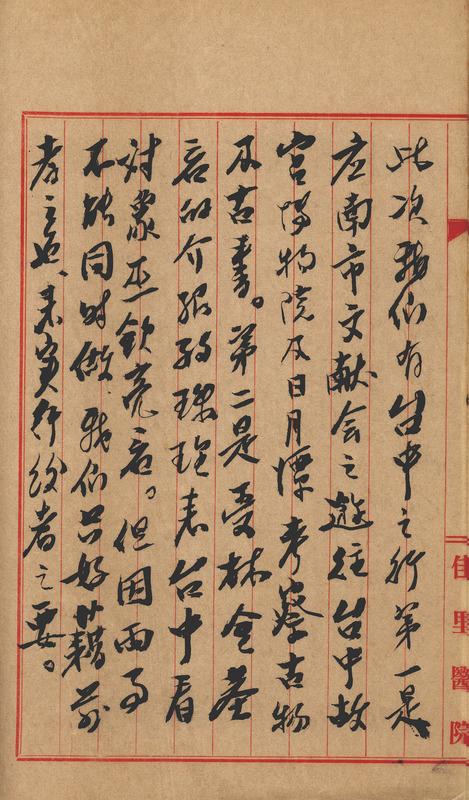 佳里醫院
此次我们有台中之行第一是
应南市文献会之往台中故
宮博物院及日月潭考察古物
及古書。第二是受林金莖
君的介紹台中看
対象巫欽亮君。但因兩事
不能同时做、我们只好藉前
者之、来实行後者之要。